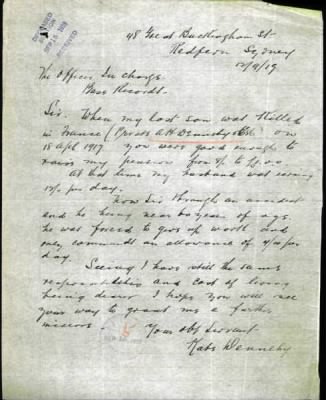 48 Great Buckingham St
Redfern Sydney
/9/19
The Officer In charge
Base Records
Sir. When my last son was Killed
in France (Private A H Dennehy) on
18 Apl 1917 you were good enough to
raise my pension from to
At that time my husband was earning
per day.
Now Sir through an accident
and he being near 60 year of age
he was forced to give up work and
only commands an allowance of per
day.
Seeing I have still the same
responsibilities and cost of living
being dearer I hope you will see
your way to grant me a further
increase.
Your obt Servant
Kate Dennehy